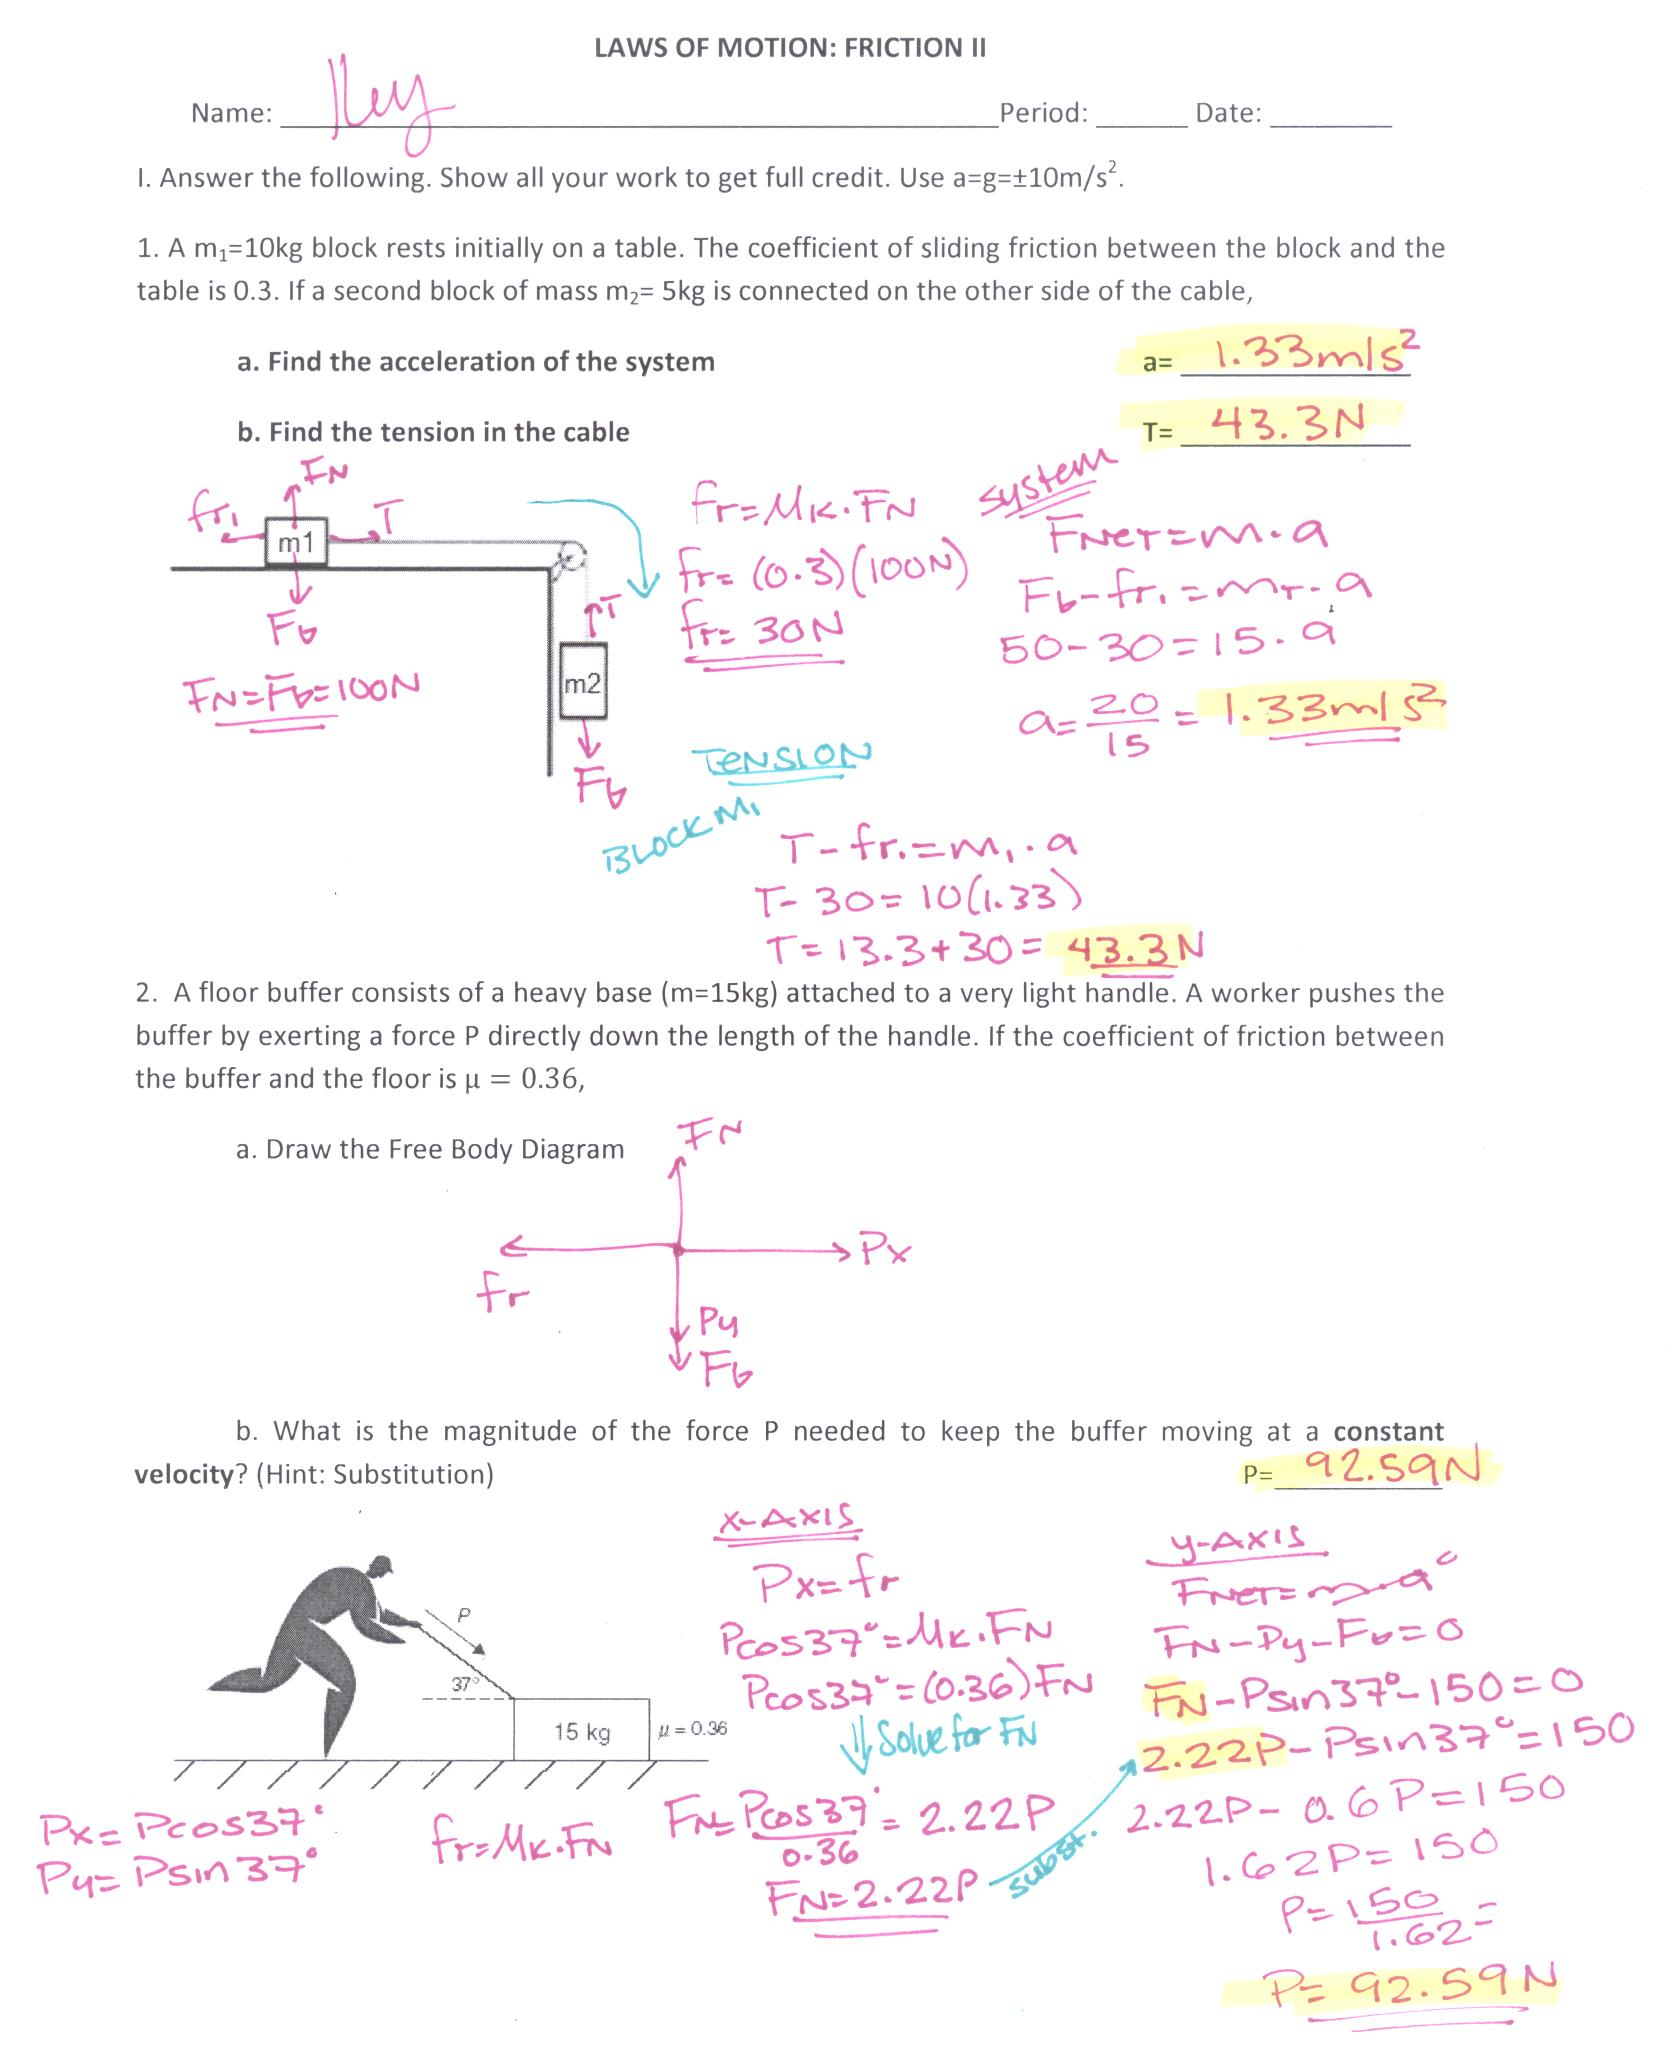 LAWS OF MOTION: FRICTION II
Name: Key Period: ______ Date: ________
I. Answer the following. Show all your work to get full credit. Use a=g=±10m/s².
1. A m₁=10kg block rests initially on a table. The coefficient of sliding friction between the block and the
table is 0.3. If a second block of mass m₂= 5kg is connected on the other side of the cable,
a. Find the acceleration of the system
a= 1.33m/s²
b. Find the tension in the cable
T= 43.3N
FN
fr₁
T
m1
Fg
FN=Fg=100N
T
m2
Fg
fr=Mk.FN
fr= (0.3)(100N)
fr= 30N
system
FNET=m.a
Fg-fr₁=mT.a
50-30=15.a
a=20/15=1.33m/s²
TENSION
BLOCK M₁
T-fr₁=m₁.a
T-30=10(1.33)
T=13.3+30=43.3N
2. A floor buffer consists of a heavy base (m=15kg) attached to a very light handle. A worker pushes the
buffer by exerting a force P directly down the length of the handle. If the coefficient of friction between
the buffer and the floor is μ = 0.36,
a. Draw the Free Body Diagram
FN
Px
fr
Py
Fg
b. What is the magnitude of the force P needed to keep the buffer moving at a constant
velocity? (Hint: Substitution)
P= 92.59N
P
37°
15 kg
μ = 0.36
Px= Pcos37°
Py= Psin37°
fr=Mk.FN
x-AXIS
Px=fr
Pcos37°=Mk.FN
Pcos37°=(0.36)FN
Solve for FN
FN=Pcos37°/0.36=2.22P
FN=2.22P
subst.
y-AXIS
FNET=m.a 0
FN-Py-Fg=0
FN-Psin37°-150=0
2.22P-Psin37°=150
2.22P-0.6P=150
1.62P=150
P=150/1.62=
P=92.59N